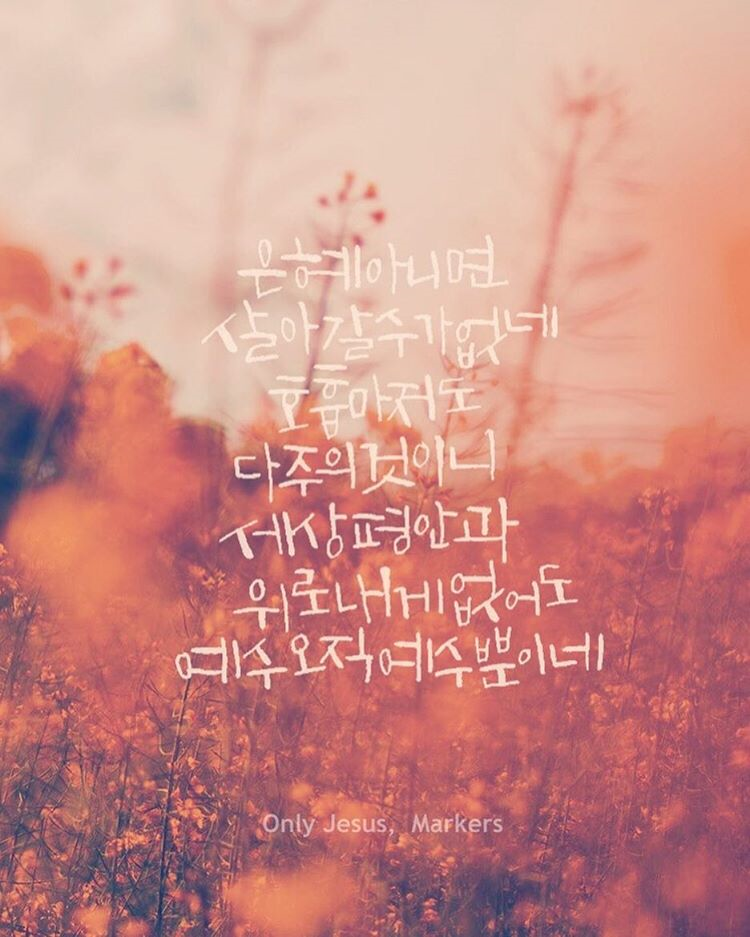 은혜아니면
살아갈수가없네
호흡마저도
다주의것이니
세상평안과
위로내게없어도
예수오직예수뿐이네
Only Jesus, Markers